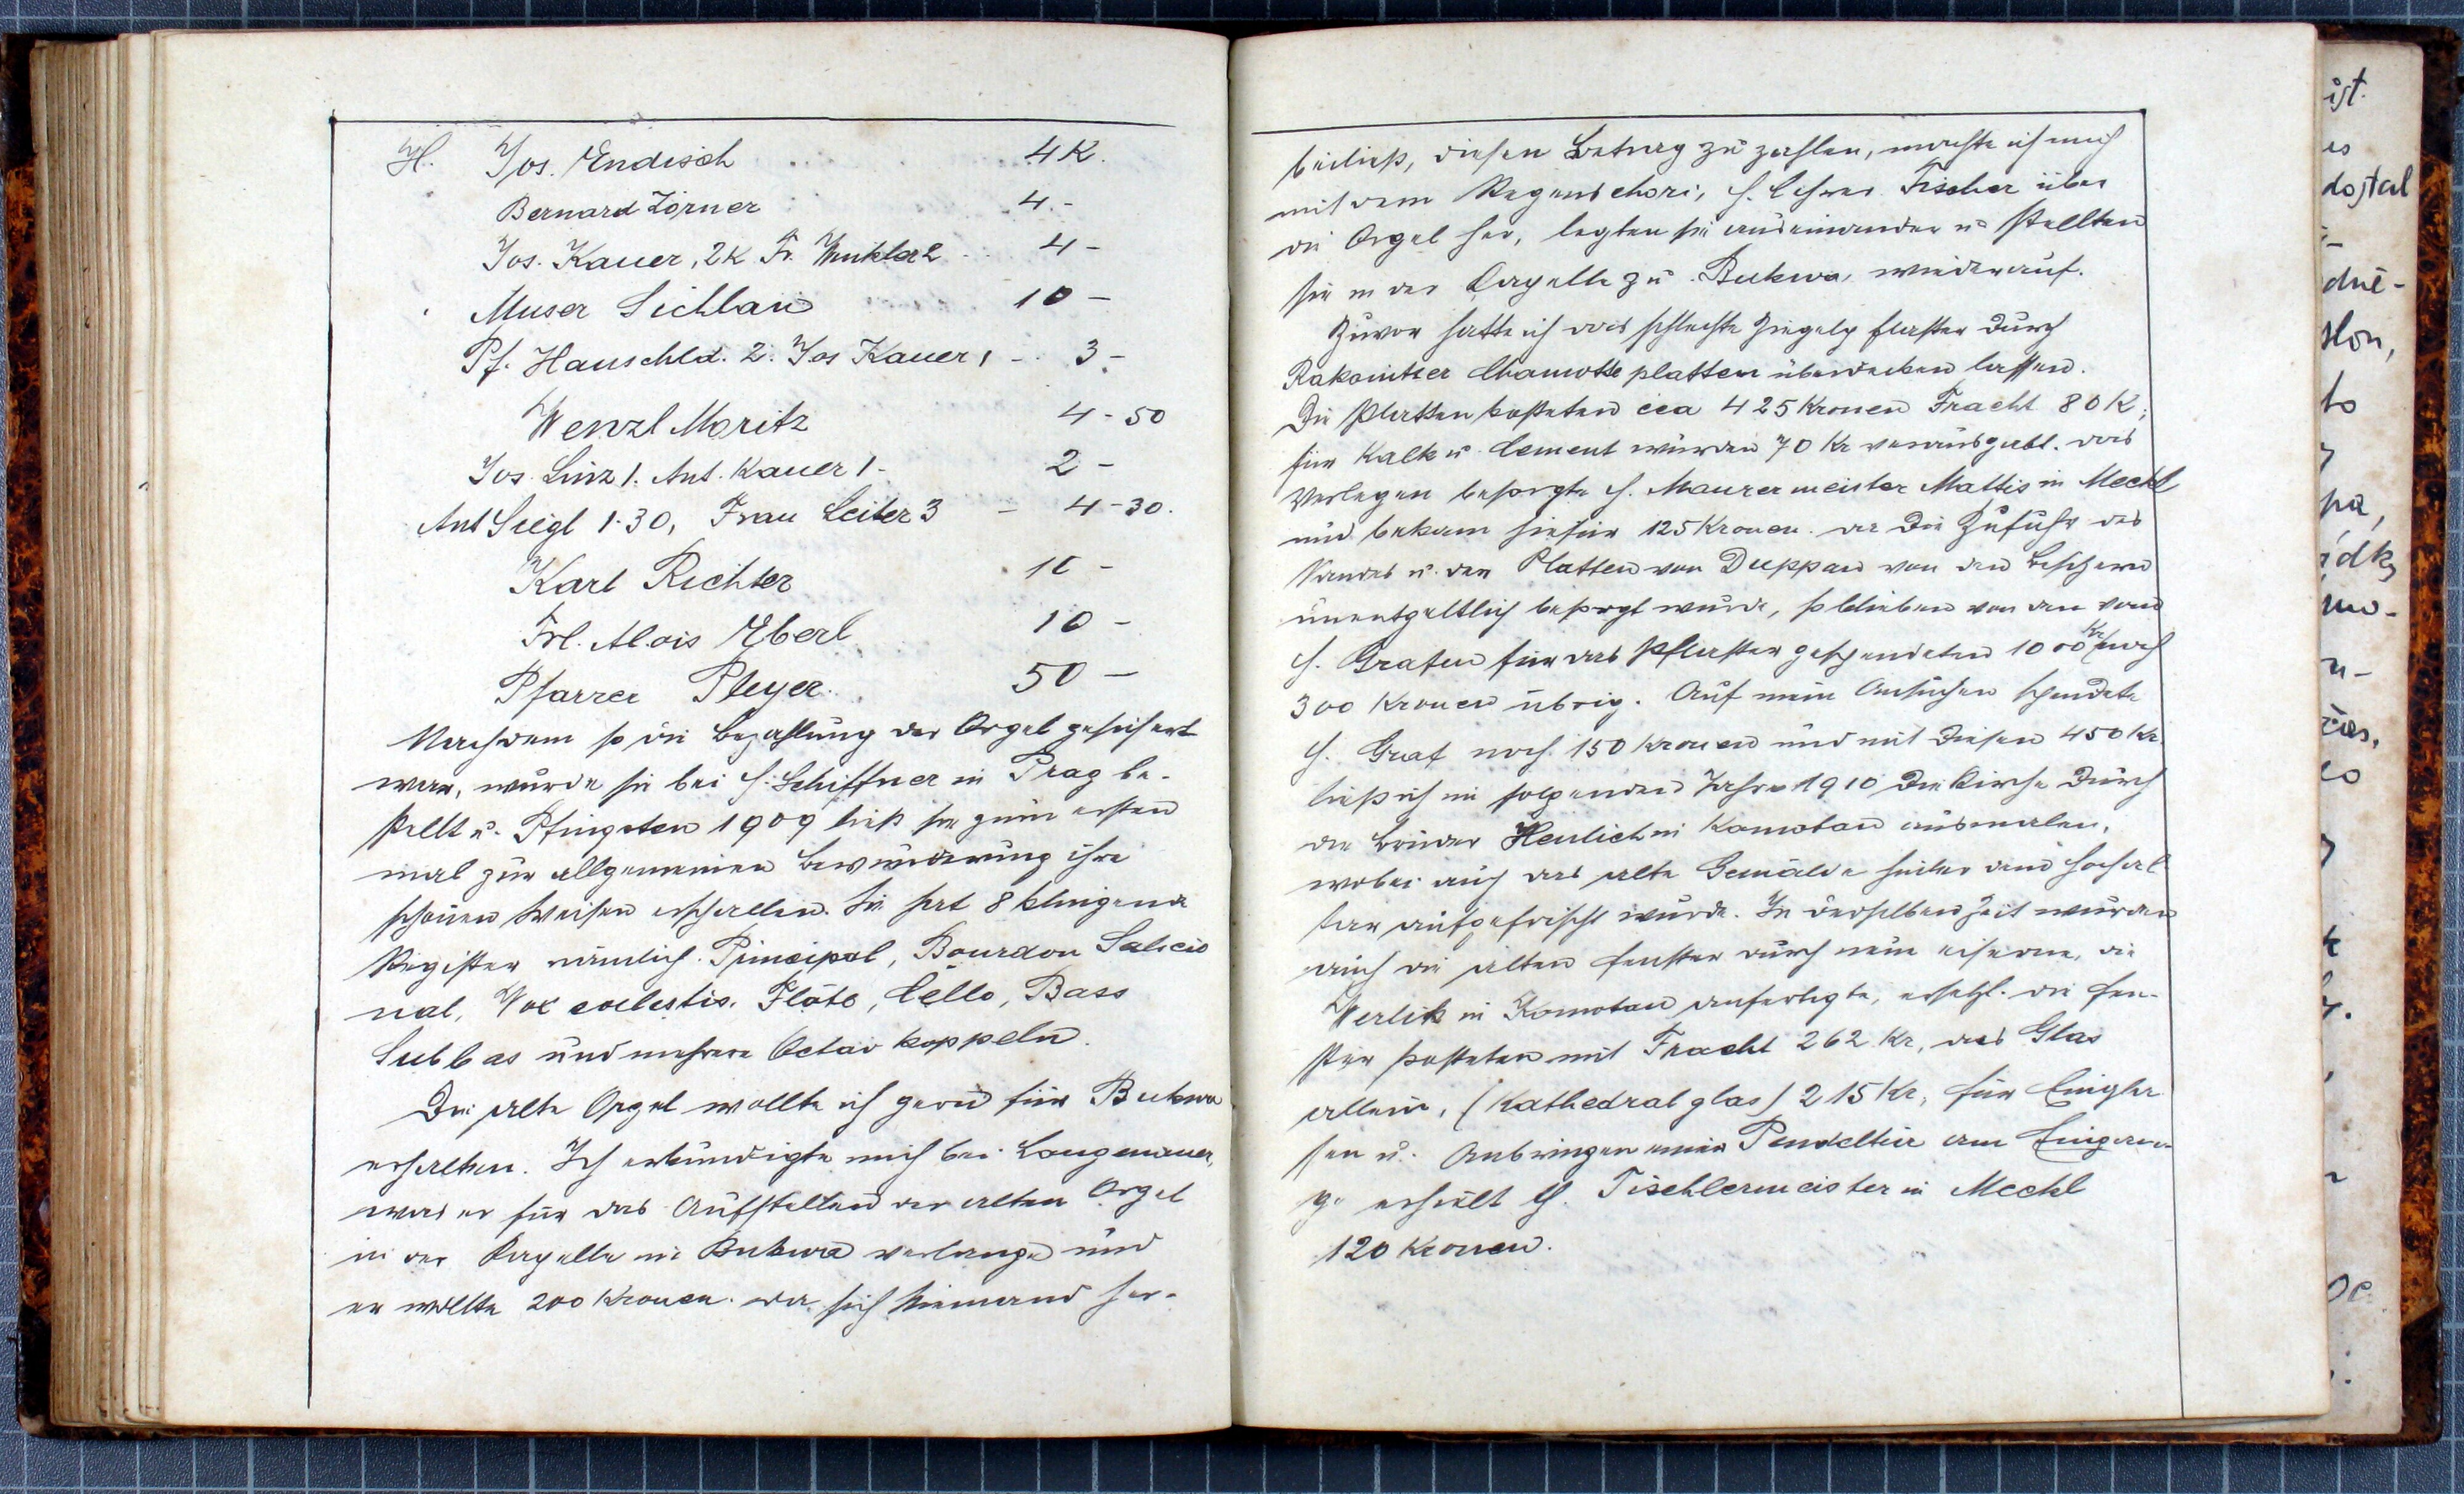 H. Jos. Endisch ... 4 K.
Bernard Zörner 4.-
Jos. Kauer, 2K Fr. Winkler 2 .. 4 -
Muser Sichlau 10 -
Pf. Hauschld. 2. Jos Kauer 1 - 3 -
Wenzl Moritz 4 - 50
Jos. Linz 1. Ant. Kauer 1 - 2 -
Ant Siegl 1.30, Frau Leiter 3 - 4 - 30.
Karl Richter 10 -
Frl. Alois Eberl 10 -
Pfarrer Pleyer .. 50 -
Nachdem so die Bezahlung der Orgel gesichert
war, wurde sie bei H. Schiffner in Prag be-
stellt u. Pfingsten 1909 ließ sie zum ersten
mal zur allgemeinen Bewunderung ihre
schönen Weisen erschallen. Sie hat 8 klingende
Register nämlich Principal, Bourdon Salicio
nal, Vox coelestis. Flöte, Cello, Bass
Subbas und mehrere Octav koppeln.
Die alte Orgel wollte ich gern für Bukwa
erhalten. Ich erkundigte mich bei Langenauer,
was er für das Aufstellen der alten Orgel
in der Capelle in Bukwa verlange und
er wollte 200 Kronen. Da sich Niemand her-
beiließ, diesen Betrag zu zahlen, machte ich mich
mit dem Regenschori, H. Lehrer Fischer über
die Orgel her, legten sie auseinander u. stellten
sie in der Capelle zu Bukwa, wieder auf.
Zuvor hatte ich das schlechte Ziegelpflaster durch
Rakonitzer Chamotteplatten überdecken lassen.
Die Platten kosteten cca 425 Kronen Fracht 80 K;
für Kalk u. Cement wurden 70 Kr verausgabt. das
Verlegen besorgte H. Maurermeister Mattis in Meckl
und bekam hiefür 125 Kronen. da die Zufuhr des
Sandes u. der Platten von Duppau von den
unentgeltlich besorgt wurde, so blieben von den vom
H. Grafen für das Pflaster gespendeten 1000 Kr noch
300 Kronen übrig. Auf mein Ansuchen spendete
H. Graf noch 150 Kronen und mit diesen 450 Kr.
ließ ich im folgenden Jahre 1910 die Kirche durch
die Brüder Heulich in Komotau ausmalen,
wobei auch das alte Gemälde hinter dem Hochal
tar aufgefrischt wurde. In derselben Zeit wurden
auch die alten Fenster durch neue eiserne, die
Werlik in Komotau anfertigte, ersetzt. die Fen-
ster kosteten mit Fracht 262 Kr, das Glas
allein, (Kathedralglas) 215 Kr, für Eingla
sen u. Anbringen einer Pendeltür am Eingan-
ge erhielt H. Tischlermeister in Meckl
120 Kronen.
ist.
es
dostal
dně-
slon,
to
y
pa,
rádky
mo-
n-
čas,
co
y
k
oc